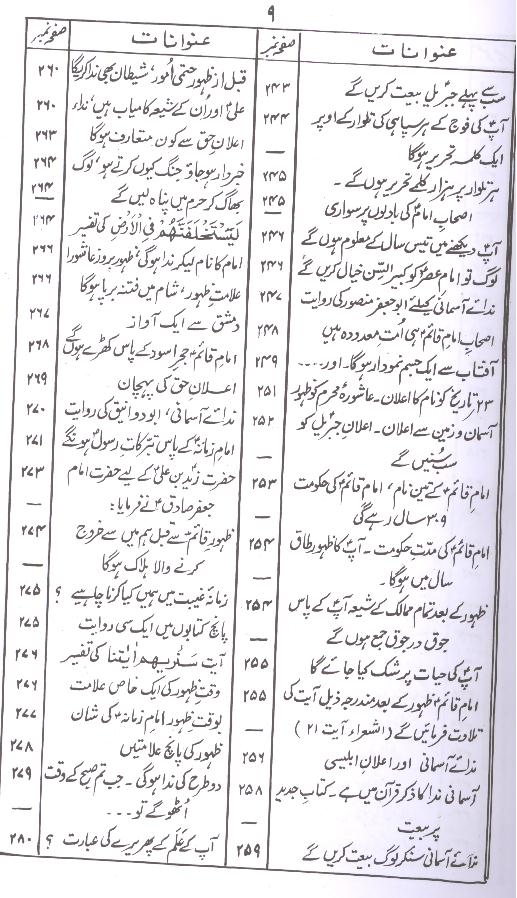 ۹
عنوانات صفحہ نمبر
سب سے پہلے جبرئیلؑ بیعت کریں گے ۲۴۳
آپؑ کی فوج کے ہر سپاہی کی تلوار کے اوپر ۲۴۴
ایک کلمہ تحریر ہوگا —
ہر تلوار پر ہزار کلمے تحریر ہوں گے ۔ ۲۴۵
اصحاب امامؑ کی بادلوں پر سواری ۲۴۵
آپؑ دیکھنے میں تیس سال کے معلوم ہوں گے ۲۴۶
لوگ تو امام عصرؑ کو کبیر السّن خیال کریں گے ۲۴۶
ندائے آسمانی کیلئے ابوجعفر منصور کی روایت ۲۴۷
اصحاب امام قائمؑ ہی امت معدودہ ہیں ۲۴۸
آفتاب سے ایک جسم نمودار ہوگا۔ اور.... ۲۴۹
۲۳ تاریخ کو نام کا اعلان۔ عاشورۂ محرم کو ظہور ۲۵۱
آسمان و زمین سے اعلان۔ اعلان جبرئیل کو ۲۵۲
سب سنیں گے —
امام قائمؑ کے تین نام، امام قائمؑ کی حکومت ۲۵۳
۳۰۹ سال رہے گی —
امام قائمؑ کی مدّتِ حکومت۔ آپؑ کا ظہور طاق ۲۵۴
سال میں ہوگا۔ —
ظہور کے بعد تمام ممالک کے شیعہ آپؑ کے پاس ۲۵۴
جوق در جوق جمع ہوں گے —
آپؑ کی حیات پر شک کیا جائے گا ۲۵۵
امام قائمؑ ظہور کے بعد مندرجہ ذیل آیت کی ۲۵۵
تلاوت فرمائیں گے (الشعراء آیت ۲۱) —
ندائے آسمانی اور اعلان ابلیسی ۲۵۶
آسمانی ندا کا ذکر قرآن میں ہے۔ کتاب جدید ۲۵۸
پر بیعت —
ندائے آسمانی سنکر لوگ بیعت کریں گے ۲۵۹
عنوانات صفحہ نمبر
قبل از ظہور حتمی امور، شیطان بھی ندا کریگا ۲۶۰
علیؑ اور ان کے شیعہ کامیاب ہیں، نداء ۲۶۰
اعلانِ حق سے کون متعارف ہوگا ۲۶۳
خبردار ہو جاؤ جنگ کیوں کرتے ہو، لوگ ۲۶۴
بھاگ کر حرم میں پناہ لیں گے —
لَيَسْتَخْلِفَنَّهُمْ فِي الْاَرْضِ کی تفسیر ۲۶۴
امام کا نام لیکر ندا ہوگی، ظہور بروز عاشورا ۲۶۶
علامتِ ظہور، شام میں فتنہ برپا ہوگا ۲۶۶
دمشق سے ایک آواز ۲۶۷
امام قائمؑ حجر اسود کے پاس کھڑے ہوں گے ۲۶۸
اعلانِ حق کی پہچان ۲۶۹
ندائے آسمانی، ابو دوانیق کی روایت ۲۷۰
امام زمانہؑ کے پاس تبرکات رسولؐ ہونگے ۲۷۱
حضرت زید بن علیؑ کے لیے حضرت امام ۲۷۳
جعفر صادقؑ نے فرمایا: —
ظہورِ قائمؑ سے قبل ہم میں سے خروج ۲۷۴
کرنے والا ہلاک ہوگا —
زمانۂ غیبت میں ہمیں کیا کرنا چاہیے ؟ ۲۷۵
پانچ کتابوں میں ایک سی روایت ۲۷۵
آیت سَنُرِيهِمْ اٰيٰتِنَا کی تفسیر ۲۷۶
وقتِ ظہور کی ایک خاص علامت ۲۷۶
بوقتِ ظہور امام زمانہؑ کی شان ۲۷۷
ظہور کی پانچ علامتیں ۲۷۸
دو طرح کی ندا ہوگی۔ جب تم صبح کے وقت ۲۷۹
اٹھو گے تو... —
آپؑ کے عَلَم کے پھریرے کی عبارت ؟ ۲۸۰